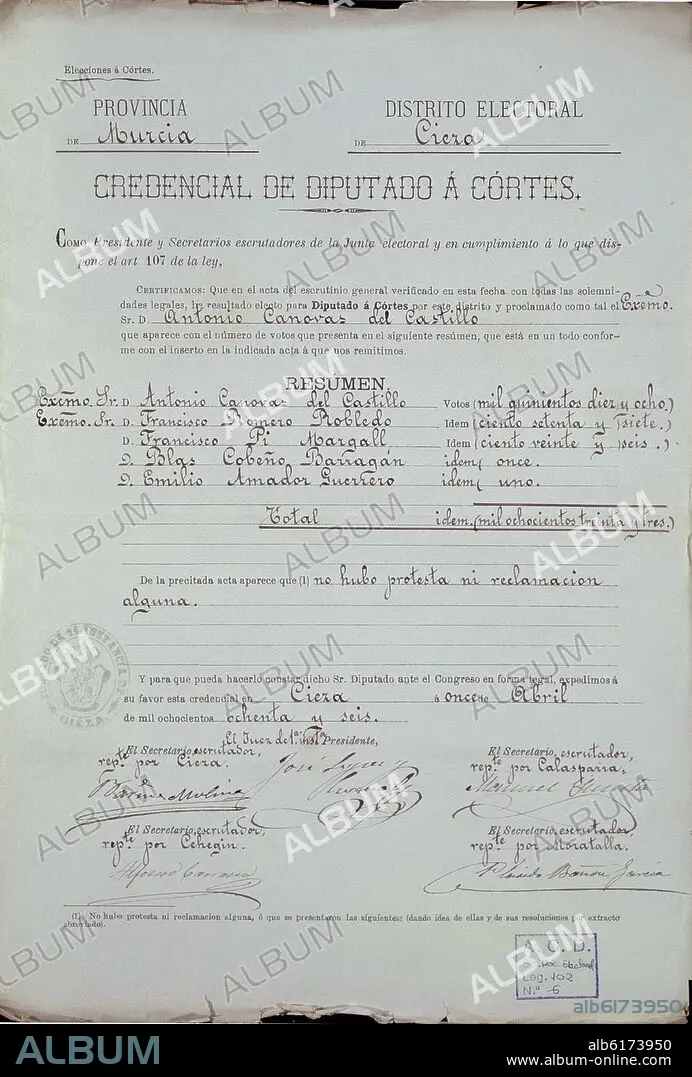 Elecciones á Córtes.
PROVINCIA
DE Murcia
DISTRITO ELECTORAL
DE Cieza
CREDENCIAL DE DIPUTADO Á CÓRTES.
Como Presidente y Secretarios escrutadores de la Junta electoral y en cumplimiento á lo que dis-
pone el art. 107 de la ley,
CERTIFICAMOS: Que en el acta del escrutinio general verificado en esta fecha con todas las solemni-
dades legales, ha resultado electo para Diputado á Córtes por este distrito y proclamado como tal el Excmo.
Sr. D. Antonio Canovas del Castillo
que aparece con el número de votos que presenta en el siguiente resúmen, que está en un todo confor-
me con el inserto en la indicada acta á que nos remitimos.
RESÚMEN.
Excmo. Sr. D. Antonio Canovas del Castillo Votos (mil quinientos diez y ocho.)
Excmo. Sr. D. Francisco Romero Robledo Idem (ciento setenta y siete.)
D. Francisco Pi Margall Idem (ciento veinte y seis.)
D. Blas Cobeño Barragán idem( once.
D. Emilio Amador Guerrero idem( uno.
Total idem. (mil ochocientos treinta y tres.)
De la precitada acta aparece que (1) no hubo protesta ni reclamacion
alguna.
Y para que pueda hacerlo constar dicho Sr. Diputado ante el Congreso en forma legal, expedimos á
su favor esta credencial en Cieza á once de Abril
de mil ochocientos ochenta y seis.
El Juez de 1.ª inst.ª Presidente,
José
El Secretario escrutador,
rep.te por Cieza.
Molina
El Secretario, escrutador,
rep.te por Calasparra,
Manuel
El Secretario, escrutador,
rep.te por Cehegin.
Alfonso
El Secretario, escrutador,
rep.te por Moratalla.
Garcia
CIEZA
(1) No hubo protesta ni reclamacion alguna, ó que se presentaron las siguientes: (dando idea de ellas y de sus resoluciones por extracto
abreviado).
A. C. D.
Electoral
Leg. 102
N.º 6
alb6173950
ALBUM
alb6173950
www.album-online.com